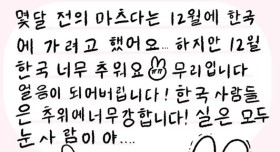 몇달 전의 마츠다는 12월에 한국
에 가려고 했어요... 하지만 12월
한국 너무 추워요 무리입니다
얼음이 되어버립니다! 한국 사람들
은 추위에너무강합니다! 실은 모두
눈사람이야....